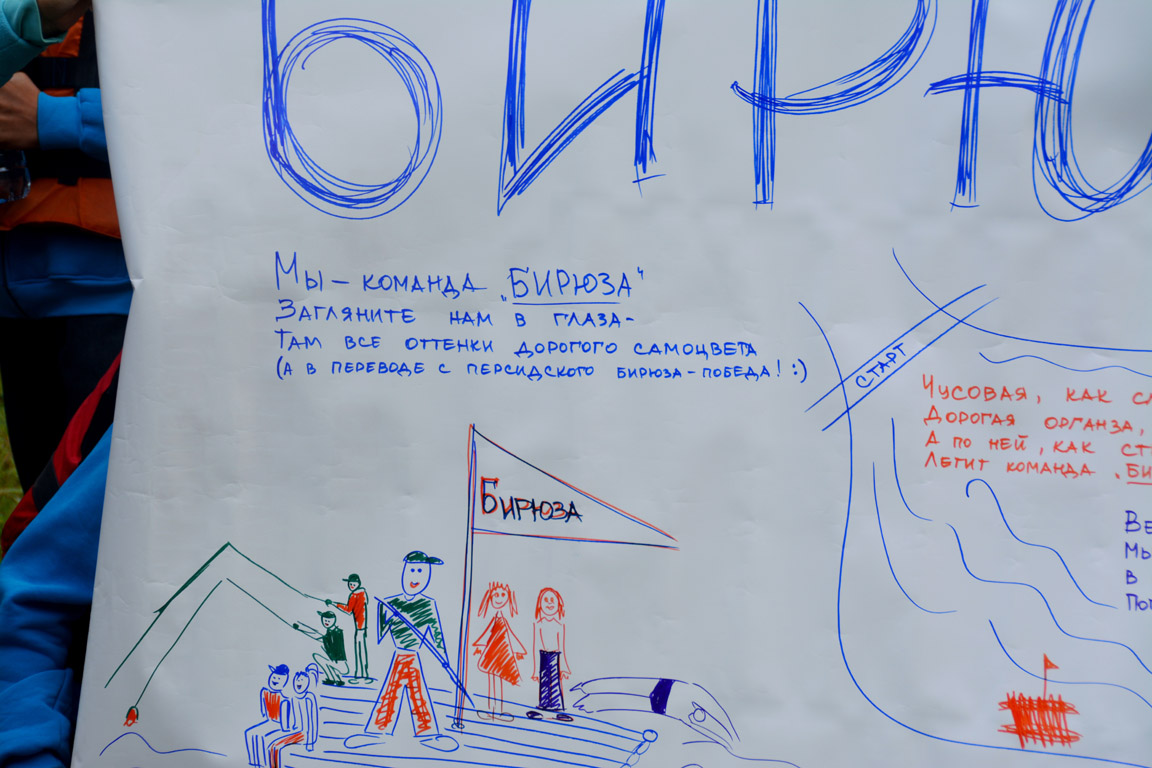 БИРЮ
Мы – КОМАНДА „БИРЮЗА"
ЗАГЛЯНИТЕ НАМ В ГЛАЗА –
ТАМ ВСЕ ОТТЕНКИ ДОРОГОГО САМОЦВЕТА
(А В ПЕРЕВОДЕ С ПЕРСИДСКОГО БИРЮЗА – ПОБЕДА! :)
СТАРТ
ЧУСОВАЯ, КАК
ДОРОГАЯ ОРГАНЗА,
А ПО НЕЙ, КАК
ЛЕТИТ КОМАНДА
БИРЮЗА
МЫ
В